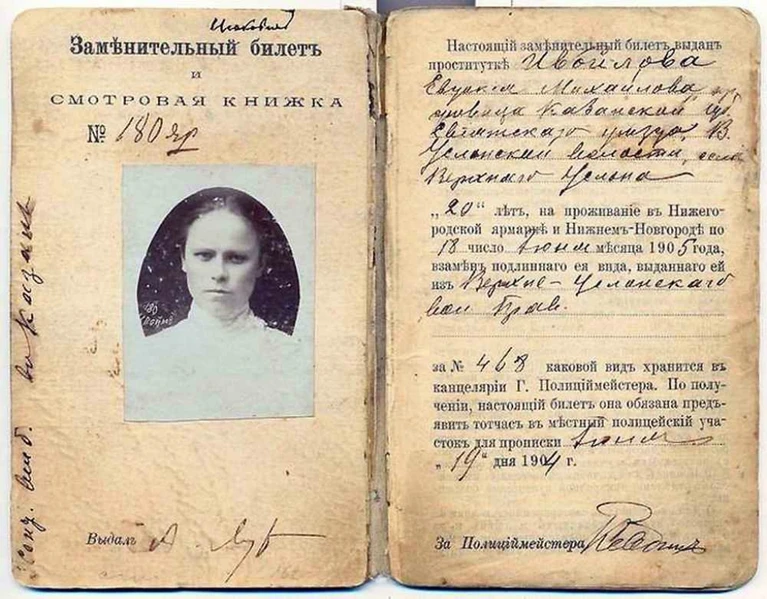 Замѣнительный билетъ
и
СМОТРОВАЯ КНИЖКА
№ 180 яр
Выдалъ
Настоящій замѣнительный билетъ выданъ
проституткѣ Ивойлова
Михайлова
Казанской губ
уѣзда, В.
Услонской волости, село
Верхняго Услона
„20“ лѣтъ, на проживаніе въ Нижего-
родской ярмаркѣ и Нижнемъ-Новгородѣ по
18 число Іюня мѣсяца 1905 года,
взамѣнъ подлиннаго ея вида, выданнаго ей
изъ Верхне-Услонскаго
вол Прав.
за № 468 каковой видъ хранится въ
канцеляріи Г. Полиціймейстера. По полу-
ченіи, настоящій билетъ она обязана предъ-
явить тотчасъ въ мѣстный полицейскій уча-
стокъ для прописки Іюня
„19“ дня 1904 г.
За Полиціймейстера